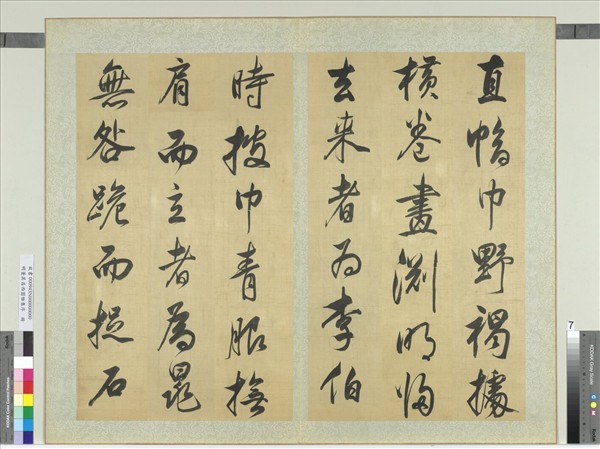 直幅巾野褐據
橫卷畫淵明歸
去来者为李伯
時披巾青服撫
肩而立者為晁
無咎跪而捉石
7